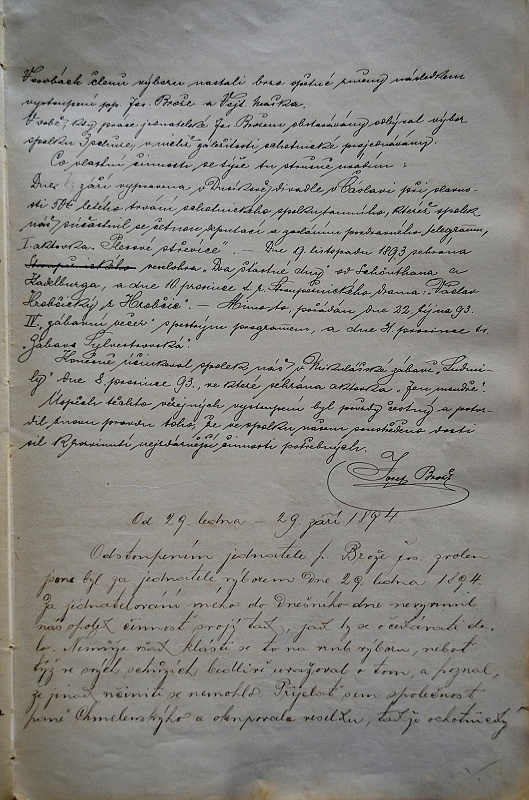 V osobách členů výboru nastali brzo opětné změny následkem
vystoupení pp. Jos. Brože a Vojt. Maška.
V době, kdy práce jednatelské Jos. Brožem obstarávány odbýval výbor
spolku 7 schůze, v nichž záležitosti ochotnické projednávány.
Co vlastní činnosti se týče tu stručně uvádím:
Dne září vypravena v Dusíkově divadle v Čáslavi při slavno-
sti 50ti letého trvání ochotnického spolku tamního, kteréž spolek
náš súčastnil se četnou deputací a zasláním pozdravného telegramu,
I. aktovka "Plesové střevíce". – Dne 19. listopadu 1893 sehrána
veselohra "Dva šťastné dny" od Schönthana a
Kadelburga, a dne 10. prosince t. r. Stroupežnického drama "Václav
Hrobčický z Hrobčic". – Mimo to, pořádán dne 22. října 93.
IV. zábavní večer s pestrým programem, a dne 31. prosince t. r.
"Zábava Sylvestrovská".
Konečně účinkoval spolek náš v Mikulášské zábavě "Ludmi-
ly" dne 8. prosince 93., ve které sehrána aktovka "Jen moudře".
Úspěch těchto veřejných vystoupení byl pokaždy čestný a potvr-
dil znovu pravdu toho, že ve spolku našem soustředěno dosti
sil k provinutí nejzdárnější činnosti potřebných.
Josef Brož
Od 29. ledna – 29. září 1894
Odstoupením jednatele p. Brože jos. zvolen
jsem byl za jednatele výborem dne 29. ledna 1894.
Za jednatelování mého do dnešního dne nevyvinul
náš spolek činnosti svojí tak, jak by se očekávati da-
lo. Nemůže však klásti se to na vrub výboru, neboť
týž ve svých schůzích bedlivě uvažoval o tom, a poznal,
že jinak učiniti se nemohlo. Přijelať sem společnost
paně Chmelenského a okupovala veselku, takže ochotnický